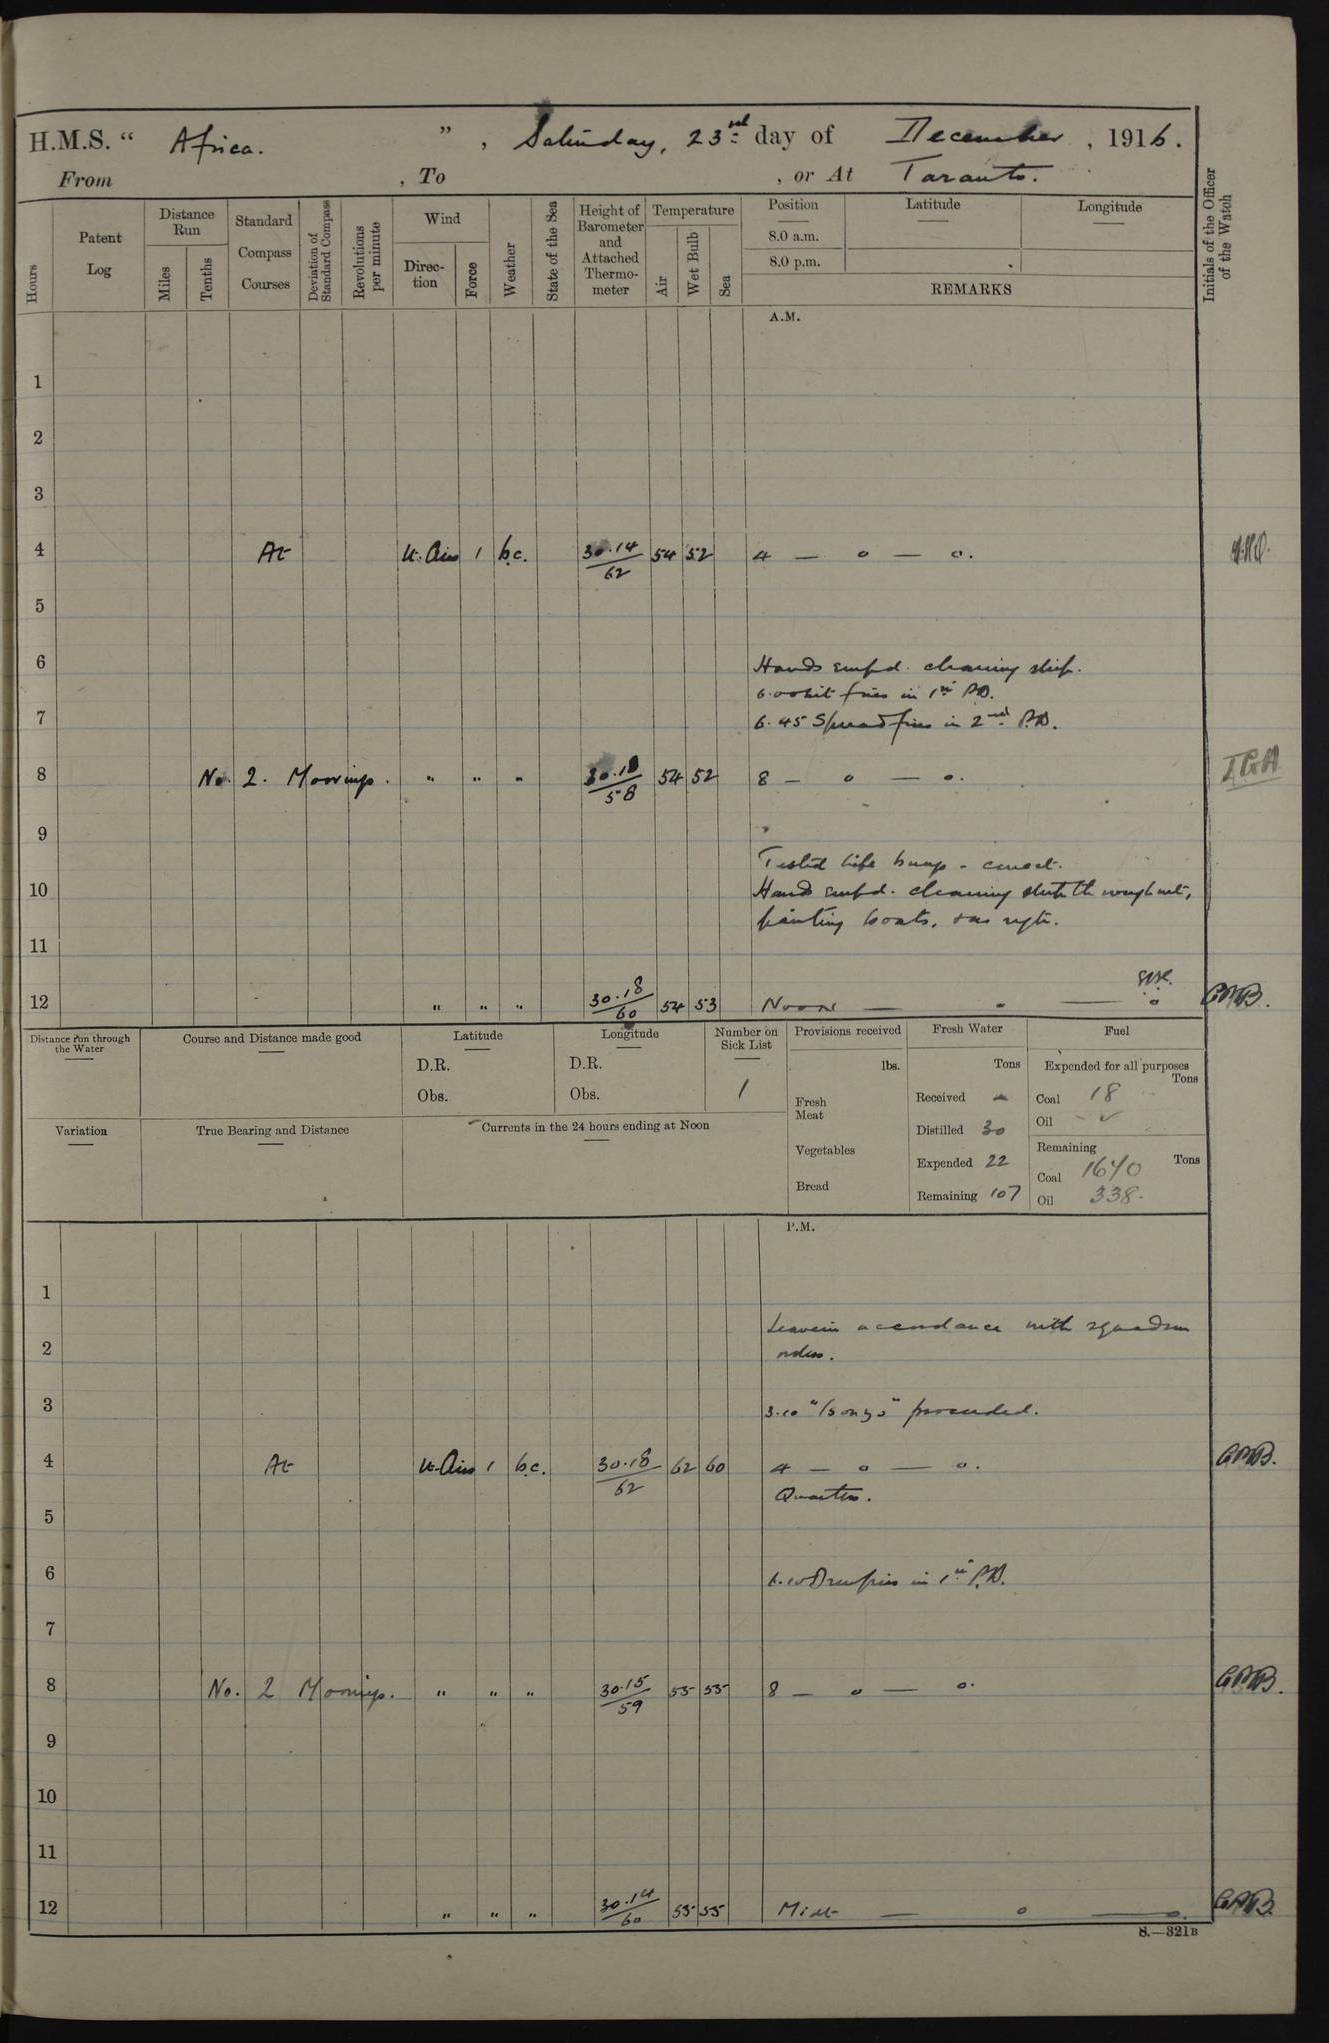 H.M.S. “ Africa. ” , Saturday, 23rd day of December , 1916.
From , To , or At Taranto.
Hours
Patent Log
Distance Run
Miles
Tenths
Standard Compass Courses
Deviation of Standard Compass
Revolutions per minute
Wind
Direction
Force
Weather
State of the Sea
Height of Barometer and Attached Thermometer
Temperature
Air
Wet Bulb
Sea
Position
8.0 a.m.
8.0 p.m.
Latitude
Longitude
REMARKS
Initials of the Officer of the Watch
A.M.
1
2
3
4 At Lt. Airs 1 b.c. 30.14/62 54 52 4 — o — o.
5
6 Hands empd. cleaning ship.
6.00 Lit fires in 1st P.D.
7 6.45 Spread fires in 2nd P.D.
8 No. 2. Moorings. " " " 30.18/58 54 52 8 — o — o. IGA
9
Tested life buoys - correct.
10 Hands empd. cleaning ship throughout,
painting boats, & as reqte.
11
12 " " " 30.18/60 54 53 Noon — o — o
Distance run through the Water
Course and Distance made good
Latitude
D.R.
Obs.
Longitude
D.R.
Obs.
Number on Sick List
1
Provisions received
lbs.
Fresh Meat
Vegetables
Bread
Fresh Water
Tons
Received -
Distilled 30
Expended 22
Remaining 107
Fuel
Expended for all purposes
Tons
Coal 18
Oil -
Remaining
Tons
Coal 1640
Oil 338.
Variation
True Bearing and Distance
Currents in the 24 hours ending at Noon
P.M.
1
Leave in accordance with squadron
2 orders.
3 3.10 "Isonzo" proceeded.
4 At Lt. Airs 1 b.c. 30.18/62 62 60 4 — o — o.
Quarters.
5
6 6.10 Drew fires in 1st P.D.
7
8 No. 2 Moorings. " " " 30.15/59 55 55 8 — o — o.
9
10
11
12 " " " 30.14/60 55 55 Midt — o — o.
S.—321B